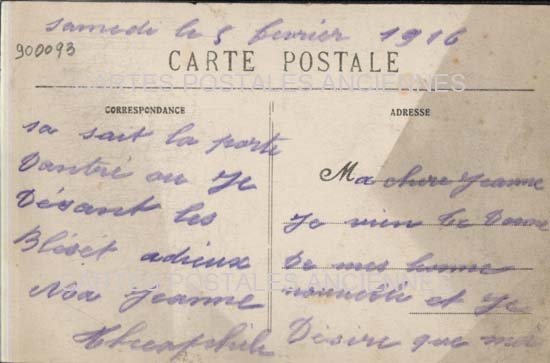 samedi le 5 fevrier 1916
900093
CARTE POSTALE
CARTES POSTALES ANCIENNES
CORRESPONDANCE
sa sait la porte
Dantré ou Je
Désant les
Bléset adieux
Jeanne
ADRESSE
Ma chere Jeanne
Je vien te Donne
De mes bonne
nouvelle et Je
Désire que
CARTES POSTALES ANCIENNES